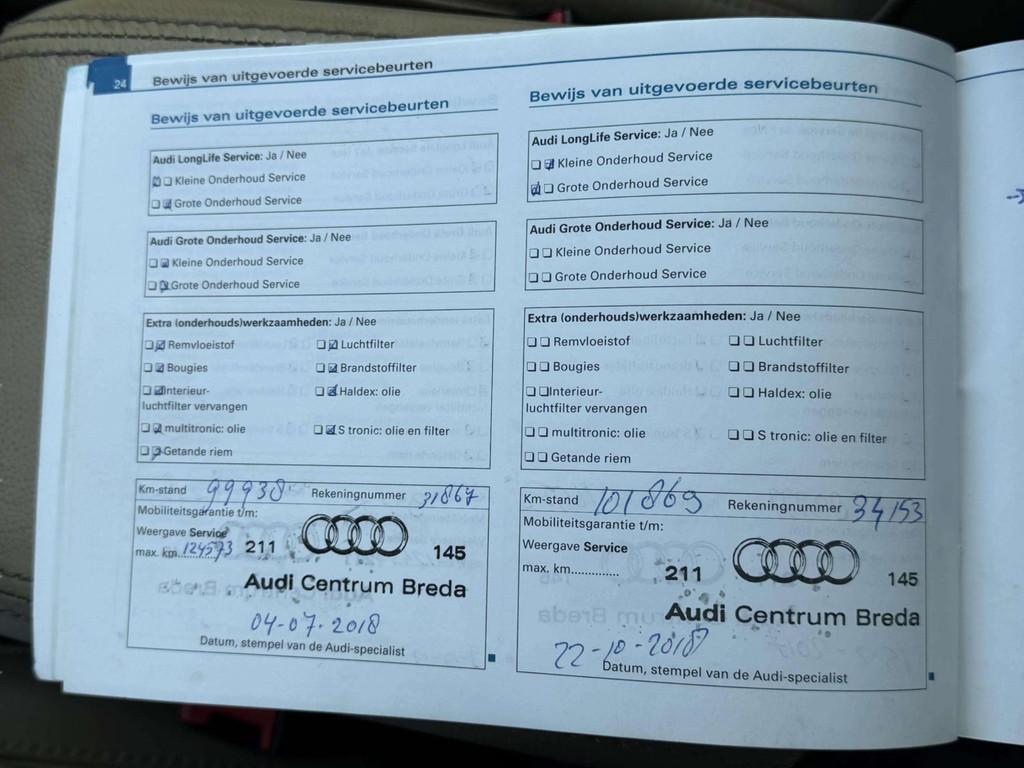 24
Bewijs van uitgevoerde servicebeurten
Bewijs van uitgevoerde servicebeurten
Audi LongLife Service: Ja / Nee
Kleine Onderhoud Service
Grote Onderhoud Service
Audi Grote Onderhoud Service: Ja / Nee
Kleine Onderhoud Service
Grote Onderhoud Service
Extra (onderhouds)werkzaamheden: Ja / Nee
Remvloeistof Luchtfilter
Bougies Brandstoffilter
Interieur- Haldex: olie
luchtfilter vervangen
multitronic: olie S tronic: olie en filter
Getande riem
Km-stand 99938 Rekeningnummer 31867
Mobiliteitsgarantie t/m:
Weergave Service
max. km. 124573 211 145
Audi Centrum Breda
04-07-2018
Datum, stempel van de Audi-specialist
Bewijs van uitgevoerde servicebeurten
Audi LongLife Service: Ja / Nee
Kleine Onderhoud Service
Grote Onderhoud Service
Audi Grote Onderhoud Service: Ja / Nee
Kleine Onderhoud Service
Grote Onderhoud Service
Extra (onderhouds)werkzaamheden: Ja / Nee
Remvloeistof Luchtfilter
Bougies Brandstoffilter
Interieur- Haldex: olie
luchtfilter vervangen
multitronic: olie S tronic: olie en filter
Getande riem
Km-stand 101869 Rekeningnummer 34153
Mobiliteitsgarantie t/m:
Weergave Service
max. km.............. 211 145
Audi Centrum Breda
22-10-2018
Datum, stempel van de Audi-specialist